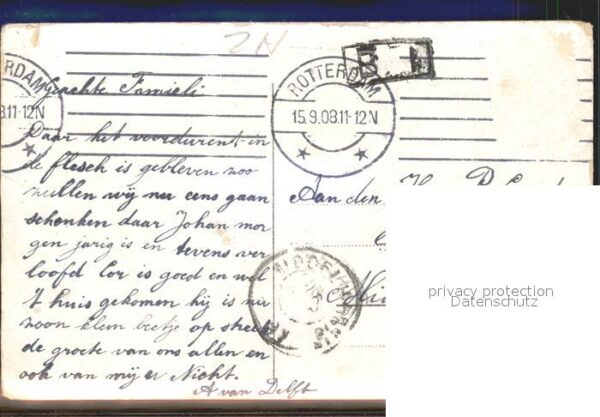 2N
B
ROTTERDAM
15.9.08.11-12N
RDAM
8.11-12N
Geachte Famieli
Daar het voordurent in
de flesch is gebleven zoo
zullen wij nu eens gaan
schenken daar Johan mor
gen jarig is en tevens ver
loofd Cor is goed en wel
't huis gekomen hij is nu
zoon klein beetje op streek
de groete van ons allen en
ook van mij er Nicht.
A van Delft
Aan den
privacy protection
Datenschutz